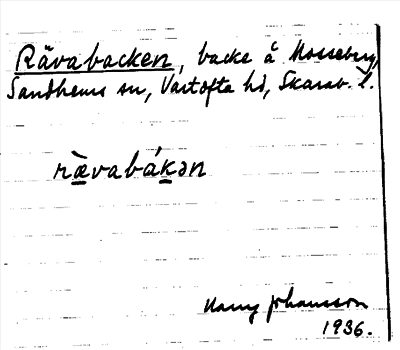 Rävabacken, backe å Mosseberg,
Sandhems sn, Vartofta hd, Skarab. l.
rævabákən
Harry Johansson
1936.